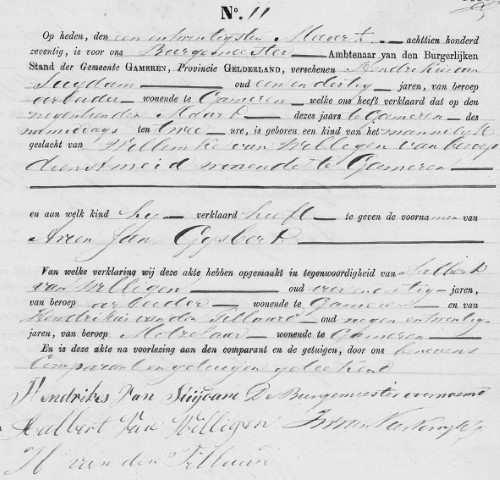 No. 11
Op heden, den een en twintigsten Maart achttien honderd
zeventig, is voor ons Burgemeester Ambtenaar van den Burgerlijken
Stand der Gemeente GAMEREN, Provincie GELDERLAND, verschenen Hendrikus van
Suijdam oud een en dertig jaren, van beroep
arbeider wonende te Gameren welke ons heeft verklaard dat op den
negentienden Maart dezes jaars te Gameren des
namiddags ten twee ure, is geboren een kind van het mannelijk
geslacht van Willemke van Welligen van beroep
dienstmeid wonende te Gameren
en aan welk kind hij verklaard heeft te geven de voornamen van
Arien Jan Gijsbert
Van welke verklaring wij deze akte hebben opgemaakt in tegenwoordigheid van Aalbert
van Welligen oud jaren,
van beroep arbeider wonende te Gameren en van
Hendrikus van den Tillaart oud negen en twintig
jaren, van beroep Metselaar wonende te Gameren
En is deze akte na voorlezing aan den comparant en de getuigen, door ons benevens
comparant en getuigen geteekend
Hendrikes Van Suijdam De Burgemeester voornoemd
Aalbert Van Willigen
H van den Tillaart